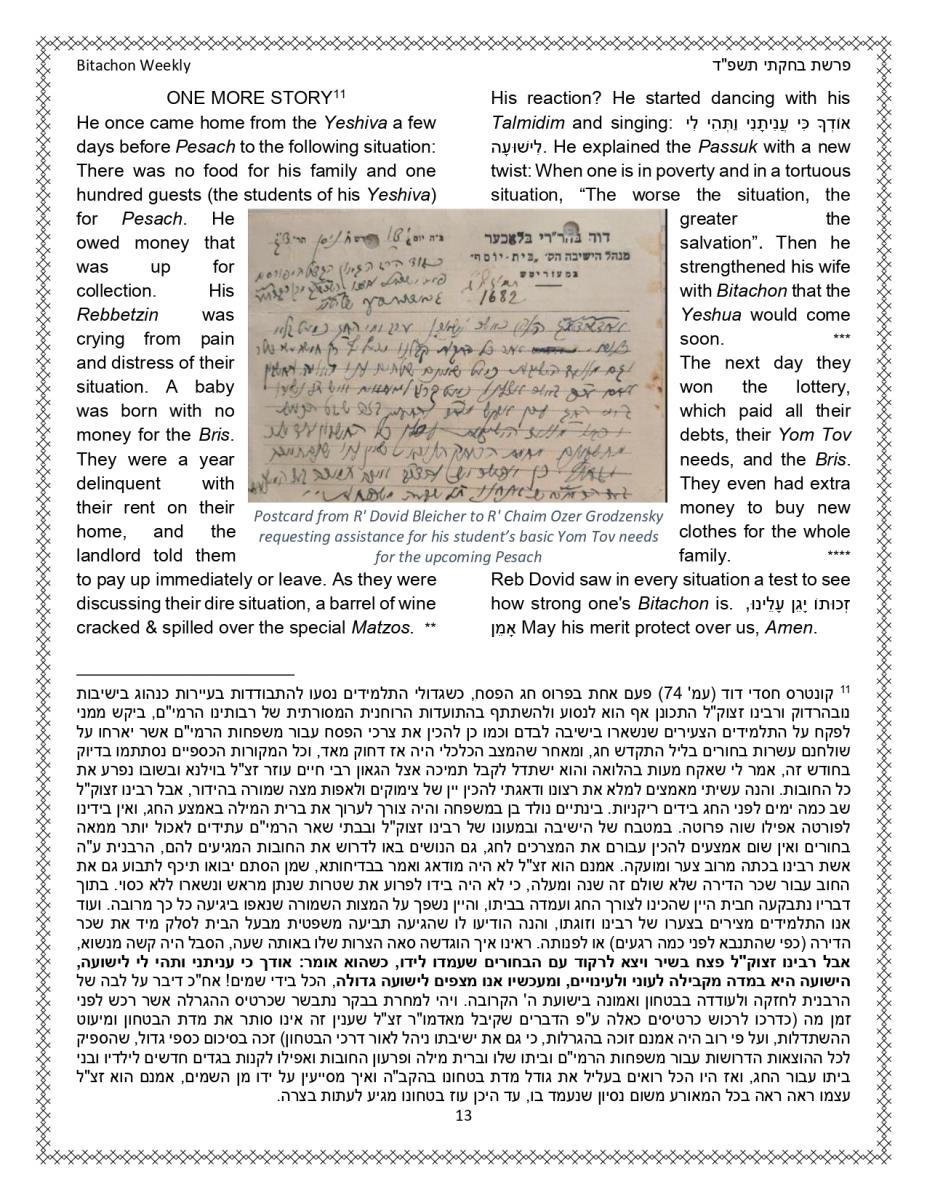 Bitachon Weekly
פרשת בחקתי תשפ"ד
ONE MORE STORY¹¹
He once came home from the Yeshiva a few
days before Pesach to the following situation:
There was no food for his family and one
hundred guests (the students of his Yeshiva)
for Pesach. He
owed money that
was up for
collection. His
Rebbetzin was
crying from pain
and distress of their
situation. A baby
was born with no
money for the Bris.
They were a year
delinquent with
their rent on their
home, and the
landlord told them
to pay up immediately or leave. As they were
discussing their dire situation, a barrel of wine
cracked & spilled over the special Matzos. **
דוד בהר"רי בלאכער
מנהל הישיבה הק' "בית-יוסף"
במעזריטש
1682
Postcard from R' Dovid Bleicher to R' Chaim Ozer Grodzensky
requesting assistance for his student's basic Yom Tov needs
for the upcoming Pesach
His reaction? He started dancing with his
Talmidim and singing: אוֹדְךָ כִּי עֲנִיתָנִי וַתְּהִי לִי
לִישׁוּעָה. He explained the Passuk with a new
twist: When one is in poverty and in a tortuous
situation, “The worse the situation, the
greater the
salvation”. Then he
strengthened his wife
with Bitachon that the
Yeshua would come
soon. ***
The next day they
won the lottery,
which paid all their
debts, their Yom Tov
needs, and the Bris.
They even had extra
money to buy new
clothes for the whole
family. ****
Reb Dovid saw in every situation a test to see
how strong one's Bitachon is. זְכוּתוֹ יָגֵן עָלֵינוּ,
אָמֵן May his merit protect over us, Amen.
¹¹ קונטרס חסדי דוד (עמ' 74) פעם אחת בפרוס חג הפסח, כשגדולי התלמידים נסעו להתבודדות בעיירות כנהוג בישיבות
נובהרדוק ורבינו זצוק"ל התכונן אף הוא לנסוע ולהשתתף בהתועדות הרוחנית המסורתית של רבותינו הרמי"ם, ביקש ממני
לפקח על התלמידים הצעירים שנשארו בישיבה לבדם וכמו כן להכין את צרכי הפסח עבור משפחות הרמי"ם אשר יארחו על
שולחנם עשרות בחורים בליל התקדש חג, ומאחר שהמצב הכלכלי היה אז דחוק מאד, וכל המקורות הכספיים נסתתמו בדיוק
בחודש זה, אמר לי שאקח מעות בהלואה והוא ישתדל לקבל תמיכה אצל הגאון רבי חיים עוזר זצ"ל בוילנא ובשובו נפרע את
כל החובות. והנה עשיתי מאמצים למלא את רצונו ודאגתי להכין יין של צימוקים ולאפות מצה שמורה בהידור, אבל רבינו זצוק"ל
שב כמה ימים לפני החג בידים ריקניות. בינתיים נולד בן במשפחה והיה צורך לערוך את ברית המילה באמצע החג, ואין בידינו
לפורטה אפילו שוה פרוטה. במטבח של הישיבה ובמעונו של רבינו זצוק"ל ובבתי שאר הרמי"ם עתידים לאכול יותר ממאה
בחורים ואין שום אמצעים להכין עבורם את המצרכים לחג, גם הנושים באו לדרוש את החובות המגיעים להם, הרבנית ע"ה
אשת רבינו בכתה מרוב צער ומועקה. אמנם הוא זצ"ל לא היה מודאג ואמר בבדיחותא, שמן הסתם יבואו תיכף לתבוע גם את
החוב עבור שכר הדירה שלא שולם זה שנה ומעלה, כי לא היה בידו לפרוע את שטרות שנתן מראש ונשארו ללא כסוי. בתוך
דבריו נתבקעה חבית היין שהכינו לצורך החג ועמדה בביתו, והיין נשפך על המצות השמורה שנאפו ביגיעה כל כך מרובה. ועוד
אנו התלמידים מצירים בצערו של רבינו וזוגתו, והנה הודיעו לו שהגיעה תביעה משפטית מבעל הבית לסלק מיד את שכר
הדירה (כפי שהתנבא לפני כמה רגעים) או לפנותה. ראינו איך הוגדשה סאה הצרות שלו באותה שעה, הסבל היה קשה מנשוא,
אבל רבינו זצוק"ל פצח בשיר ויצא לרקוד עם הבחורים שעמדו לידו, כשהוא אומר: אודך כי עניתני ותהי לי לישועה,
הישועה היא במדה מקבילה לעוני ולעינויים, ומעכשיו אנו מצפים לישועה גדולה, הכל בידי שמים! אח"כ דיבר על לבה של
הרבנית לחזקה ולעודדה בבטחון ואמונה בישועת ה' הקרובה. ויהי למחרת בבקר נתבשר שכרטיס ההגרלה אשר רכש לפני
זמן מה (כדרכו לרכוש כרטיסים כאלה ע"פ הדברים שקיבל מאדמו"ר זצ"ל שענין זה אינו סותר את מדת הבטחון ומיעוט
ההשתדלות, ועל פי רוב היה אמנם זוכה בהגרלות, כי גם את ישיבתו ניהל לאור דרכי הבטחון) זכה בסיכום כספי גדול, שהספיק
לכל ההוצאות הדרושות עבור משפחות הרמי"ם וביתו שלו וברית מילה ופרעון החובות ואפילו לקנות בגדים חדשים לילדיו ובני
ביתו עבור החג, ואז היו הכל רואים בעליל את גודל מדת בטחונו בהקב"ה ואיך מסייעין על ידו מן השמים, אמנם הוא זצ"ל
עצמו ראה ראה בכל המאורע משום נסיון שנעמד בו, עד היכן עוז בטחונו מגיע לעתות בצרה.
13